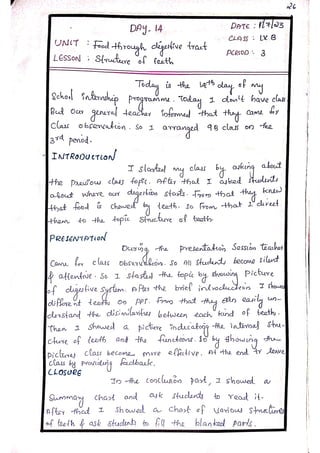 26
DAY. 14
DATE : 1/7/23
CLASS : IX B
PERIOD : 3
UNIT : Food through digestive tract
LESSON : Structure of teeth
Today is the 14th day of my
School internship programme. Today I don't have class
But our general teacher informed that they come for
Class observation. So I arranged 9B class on the
3rd period.
INTRODUCTION
I started my class by asking about
the previous class topic. After that I asked students
about where our digestion starts. From that they knew
that food is chewed by teeth. So from that I direct
them to the topic Structure of teeth
PRESENTATION
During the presentation Session teacher
Came for class observation. So all students become silent
& attentive. So I started the topic by showing Picture
of digestive system. After the brief introduction I showed
different teeth on PPT. From that they can easily un-
derstand the disimilarities between each kind of teeth.
Then I showed a picture indicating the internal Stru-
cture of teeth and the functions. So by showing the
pictures class become more effective. At the end I leave
class by providing feedback.
CLOSURE
In the conclusion part, I showed a
Summary chart and ask students to read it.
After that I showed a chart of various structures
of teeth & ask students to fill the blanked parts.